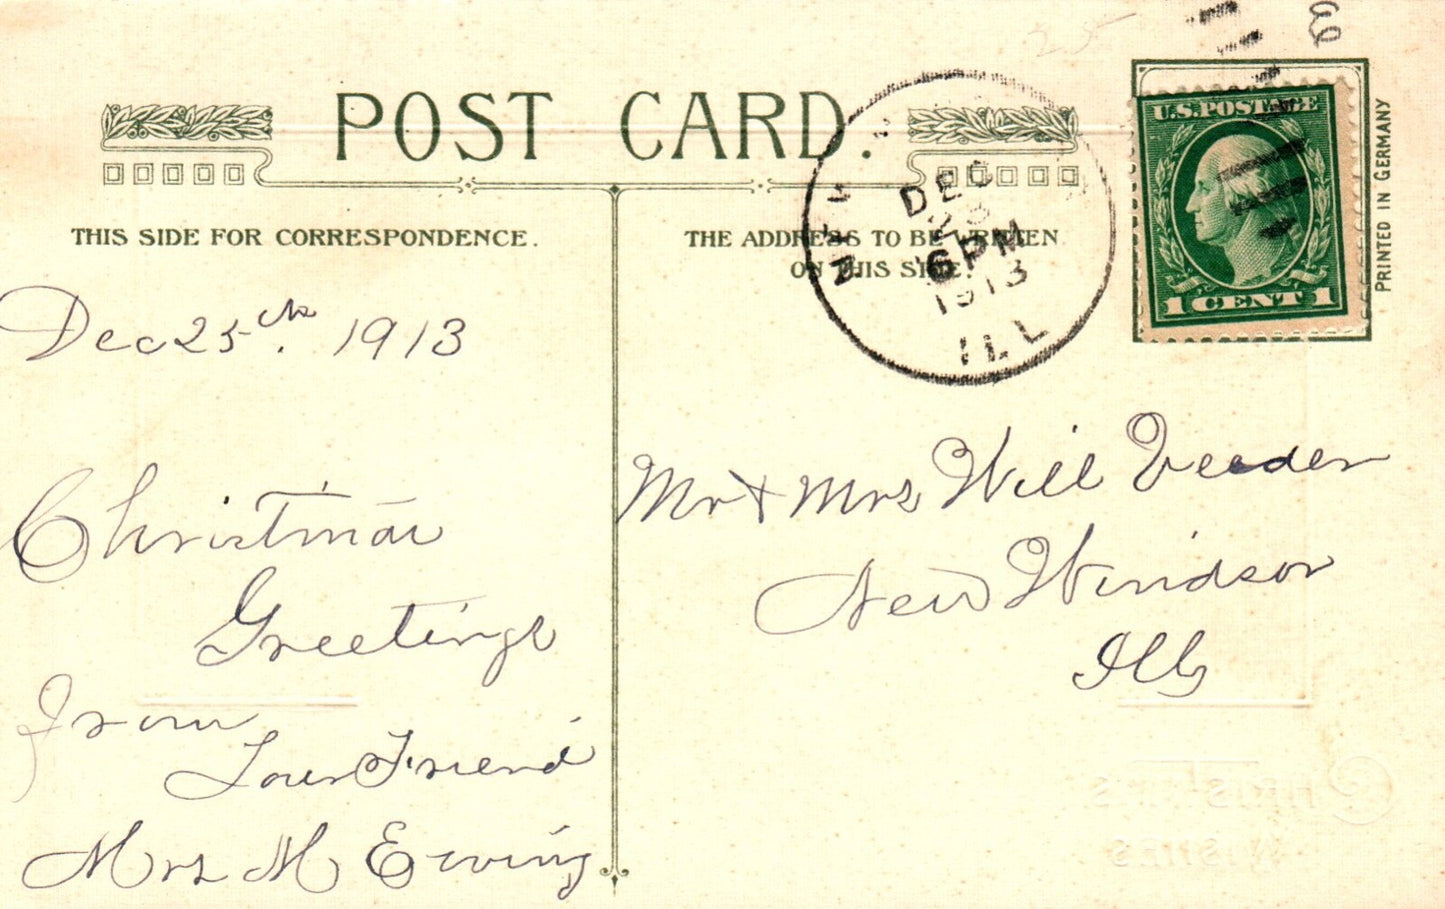 POST CARD.
THIS SIDE FOR CORRESPONDENCE.
THE ADDRESS TO BE WRITTEN
ON THIS SIDE.
NEW
DEC
23
6PM
1913
ILL
U.S. POSTAGE
1 CENT 1
PRINTED IN GERMANY
25
Dec 25th. 1913
Christmas
Greetings
from
Your Friend
Mrs M Ewing
Mr & Mrs Will Veeder
New Windsor
Ills
CHRISTMAS
WISHES